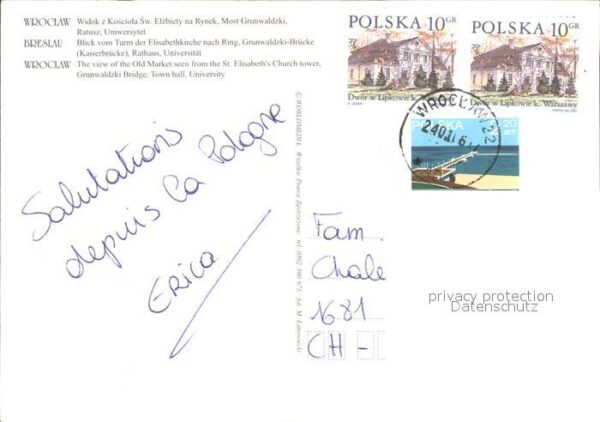 WROCŁAW Widok z Kościoła Św. Elżbiety na Rynek, Most Grunwaldzki,
Ratusz, Uniwersytet
BRESLAU Blick vom Turm der Elisabethkirche nach Ring, Grunwaldzki-Brücke
(Kaiserbrücke), Rathaus, Universität
WROCŁAW The view of the Old Market seen from the St. Elisabeth's Church tower,
Grunwaldzki Bridge, Town hall, University
POLSKA 10GR
Dwór w Lipkowie k. Warszawy
POLSKA 10GR
Dwór w Lipkowie k. Warszawy
WROCŁAW 22
POLSKA
20
zł
Salutations
depuis la Pologne
Erica
Fam.
Chale
1681
CH-
privacy protection
Datenschutz